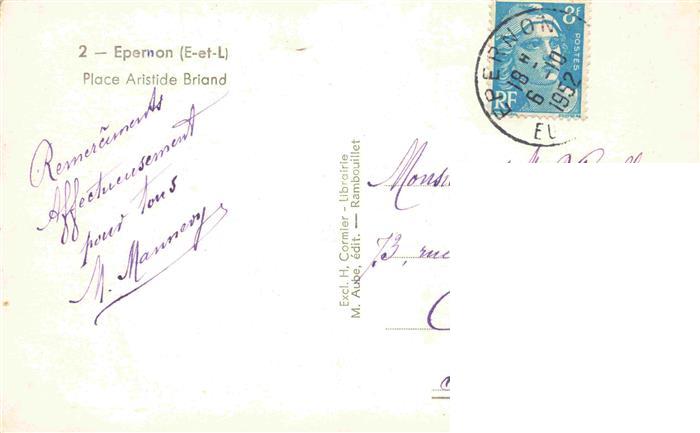 2 — Epernon (E-et-L)
Place Aristide Briand
Remerciments
Affectueusement
pour tous
M. Mannevy
Excl. H. Cormier - Librairie
M. Aube, édit. — Rambouillet
8F
POSTES
RF
EPERNON
18 H
6 -10
1952
EU
Monsi
73, rue